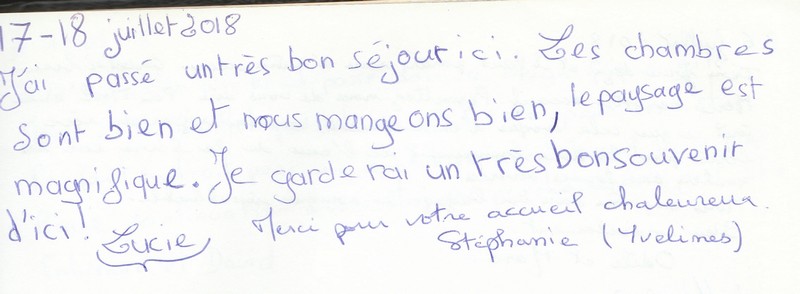 17-18 juillet 2018
J'ai passé un très bon séjour ici. Les chambres
sont bien et nous mangeons bien, le paysage est
magnifique. Je garderai un très bon souvenir
d'ici! Lucie
Merci pour votre accueil chaleureux.
Stéphanie (Yvelines)